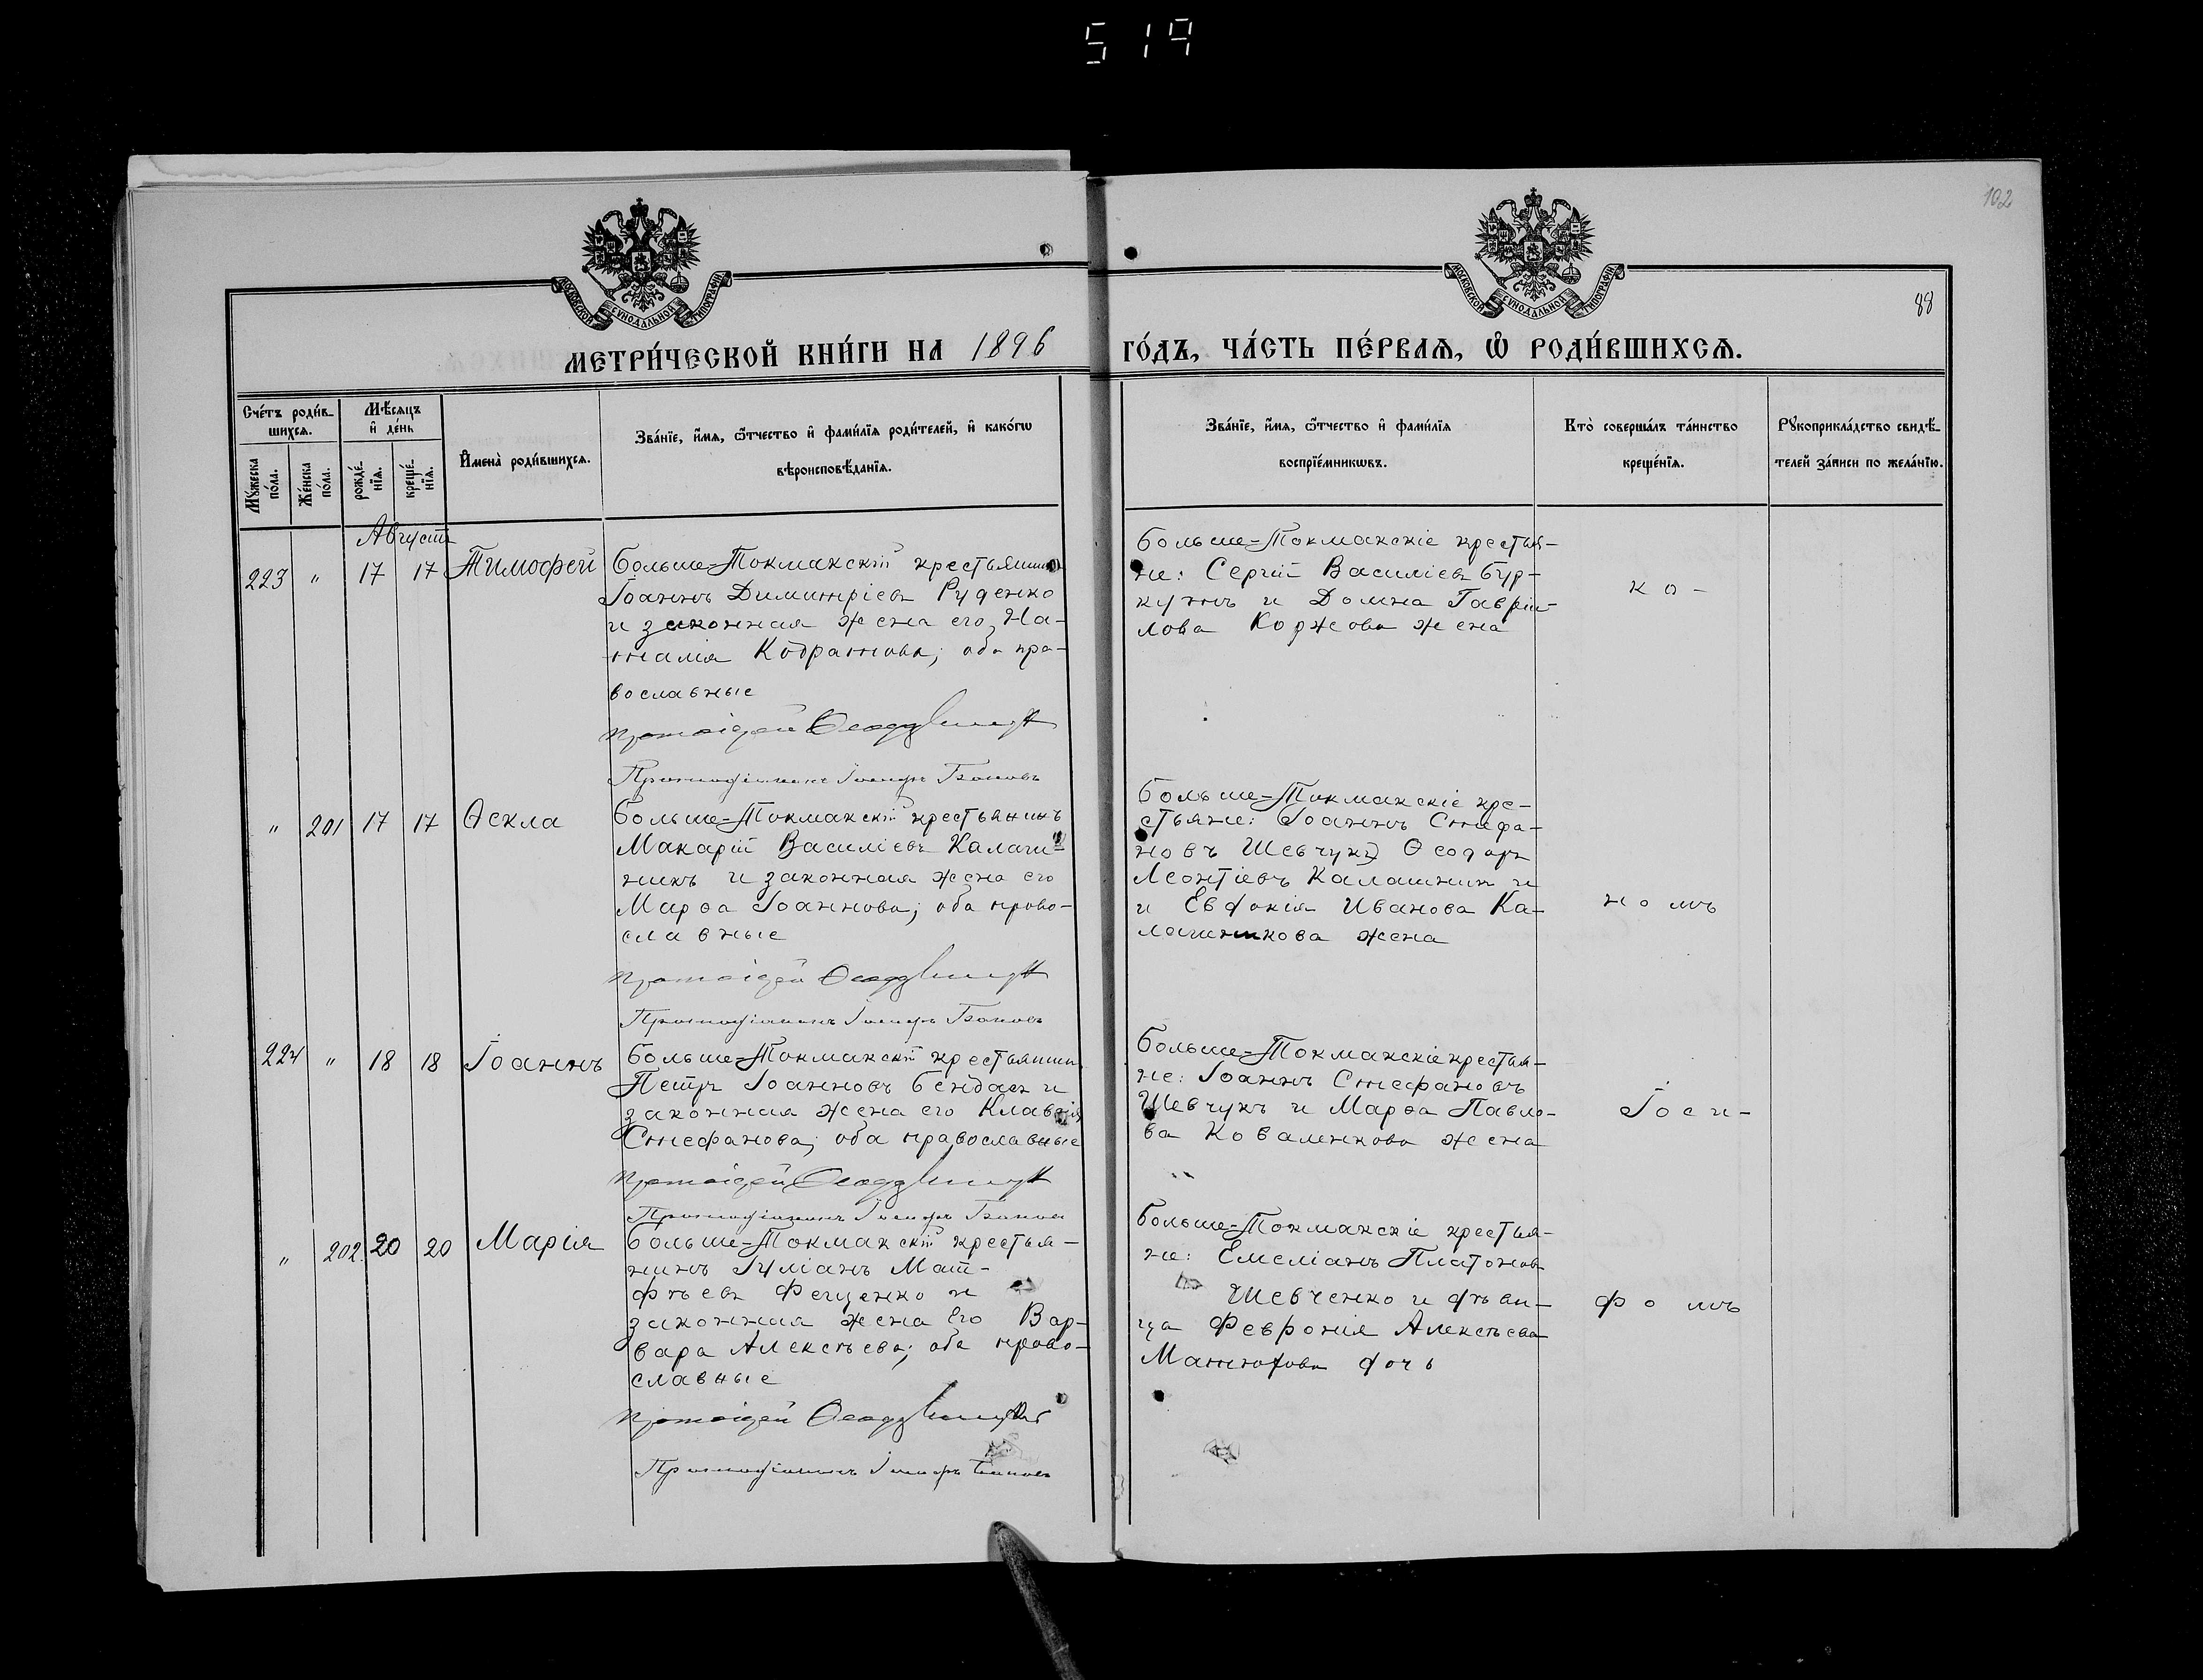 519
102
88
МОСКОВСКОЙ СѴНОДАЛЬНОЙ ТИПОГРАФІИ
МОСКОВСКОЙ СѴНОДАЛЬНОЙ ТИПОГРАФІИ
МЕТРИ́ЧЕСКОЙ КНИ́ГИ НА 1896 ГО́ДЪ, ЧА́СТЬ ПЕ́РВАѦ, Ѽ РОДИ́ВШИХСѦ.
Сче́тъ роди́в-
шихсѧ.
Мѣ́сѧцъ
и҆ де́нь
Мꙋ́жеска
по́ла.
Же́нска
по́ла.
рожде́-
нїѧ.
креще́-
нїѧ.
И҆мена̀ роди́вшихсѧ.
Зва́нїе, и҆́мѧ, ѻ҆́тчество и҆ фами́лїѧ роди́телей, и҆ како́гѡ
вѣроисповѣ́данїѧ.
Зва́нїе, и҆́мѧ, ѻ҆́тчество и҆ фами́лїѧ
воспрїе́мникѡвъ.
Кто̀ соверша́лъ та́инство
креще́нїѧ.
Рꙋкоприкла́дство свидѣ́-
телей за́писи по жела́нїю.
Августъ
223 " 17 17 Тимофей
Больше-Токмакскій крестьянинъ
Іоаннъ Димитріевъ Руденко
и законная жена его На-
талія Кодратова; оба пра-
вославные
Протоіерей Ѳеодоръ
Протодіаконъ Іосифъ Баковъ
Больше-Токмакскіе крестья-
не: Сергій Василіевъ Бур-
кутъ и Домна Гаврии-
лова Коржова жена
ко-
" 201 17 17 Ѳекла
Больше-Токмакскій крестьянинъ
Макарій Василіевъ Калаш-
никъ и законная жена его
Марѳа Іоаннова; оба право-
славные
Протоіерей Ѳеодоръ
Протодіаконъ Іосифъ Баковъ
Больше-Токмакскіе кре-
стьяне: Іоаннъ Стефа-
новъ Шевчукъ, Ѳеодоръ
Леонтіевъ Калашникъ и
и Евдокія Иванова Ка-
лашникова жена
номъ
224 " 18 18 Іоаннъ
Больше-Токмакскій крестьянинъ
Петръ Іоанновъ Бендасъ и
законная жена его Клавдія
Стефанова; оба православные
Протоіерей Ѳеодоръ
Протодіаконъ Іосифъ Баковъ
Больше-Токмакскіе крестья-
не: Іоаннъ Стефановъ
Шевчукъ и Марѳа Павло-
ва Коваленкова жена
Іоси-
" 202 20 20 Марія
Больше-Токмакскій крестья-
нинъ Іуліанъ Мат-
фѣевъ Фещенко и
законная жена его Вар-
вара Алексѣева; оба право-
славные
Протоіерей Ѳеодоръ
Протодіаконъ Іосифъ Баковъ
Больше-Токмакскіе крестья-
не: Емеліанъ Платоновъ
Шевченко и дѣви-
ца Февронія Алексѣева
дочь
фомъ